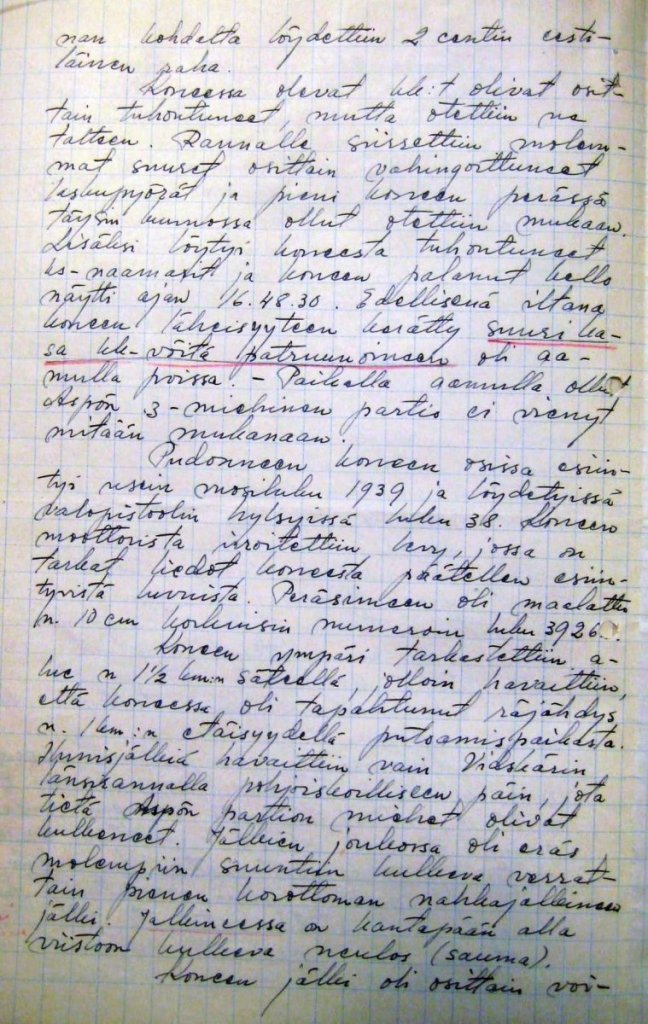 nan kohdalta löydettiin 2 centin eesti-
läinen raha.
Koneessa olevat kk:t olivat osit-
tain tuhoutuneet, mutta otettiin ne
talteen. Rannalle siirrettiin molem-
mat suuret osittain vahingoittuneet
laskupyörät ja pieni koneen perässä
täysin kunnossa ollut otettiin mukaan.
Lisäksi löytyi koneesta tuhoutuneet
ks-naamarit ja koneen palanut kello
näytti ajan 16.48.30. Edellisenä iltana
koneen läheisyyteen kerätty suuri ka-
sa kk-vöitä patruunoineen oli aa-
mulla poissa. – Paikalla aamulla ollut
Aspön 3-miehinen partio ei vienyt
mitään mukanaan.
Pudonneen koneen osissa esiin-
tyi usein vuosiluku 1939 ja löydetyissä
valopistoolin hylsyissä luku 38. Koneen
moottorista irroitettiin levy, jossa on
tarkat tiedot koneesta päätellen esiin-
tyvistä luvuista. Peräsimeen oli maalattu
n. 10 cm korkuisin numeroin luku 3926.
Koneen ympäri tarkastettiin a-
lue n 1½ km:n säteellä, jolloin havaittiin,
että koneessa oli tapahtunut räjähdys
n. 1 km:n etäisyydellä putoamispaikasta.
Ihmisjälkiä havaittiin vain Viaskärin
länsirannalla pohjoiskoilliseen päin, jota
tietä Aspön partion miehet olivat
kulkeneet. Jälkien joukossa oli eräs
molempiin suuntiin kulkeva verrat-
tain pienen korottoman nahkajalkineen
jälki. Jalkineessa on kantapään alla
viistoon kulkeva neulos (sauma).
Koneen jälki oli osittain voi-